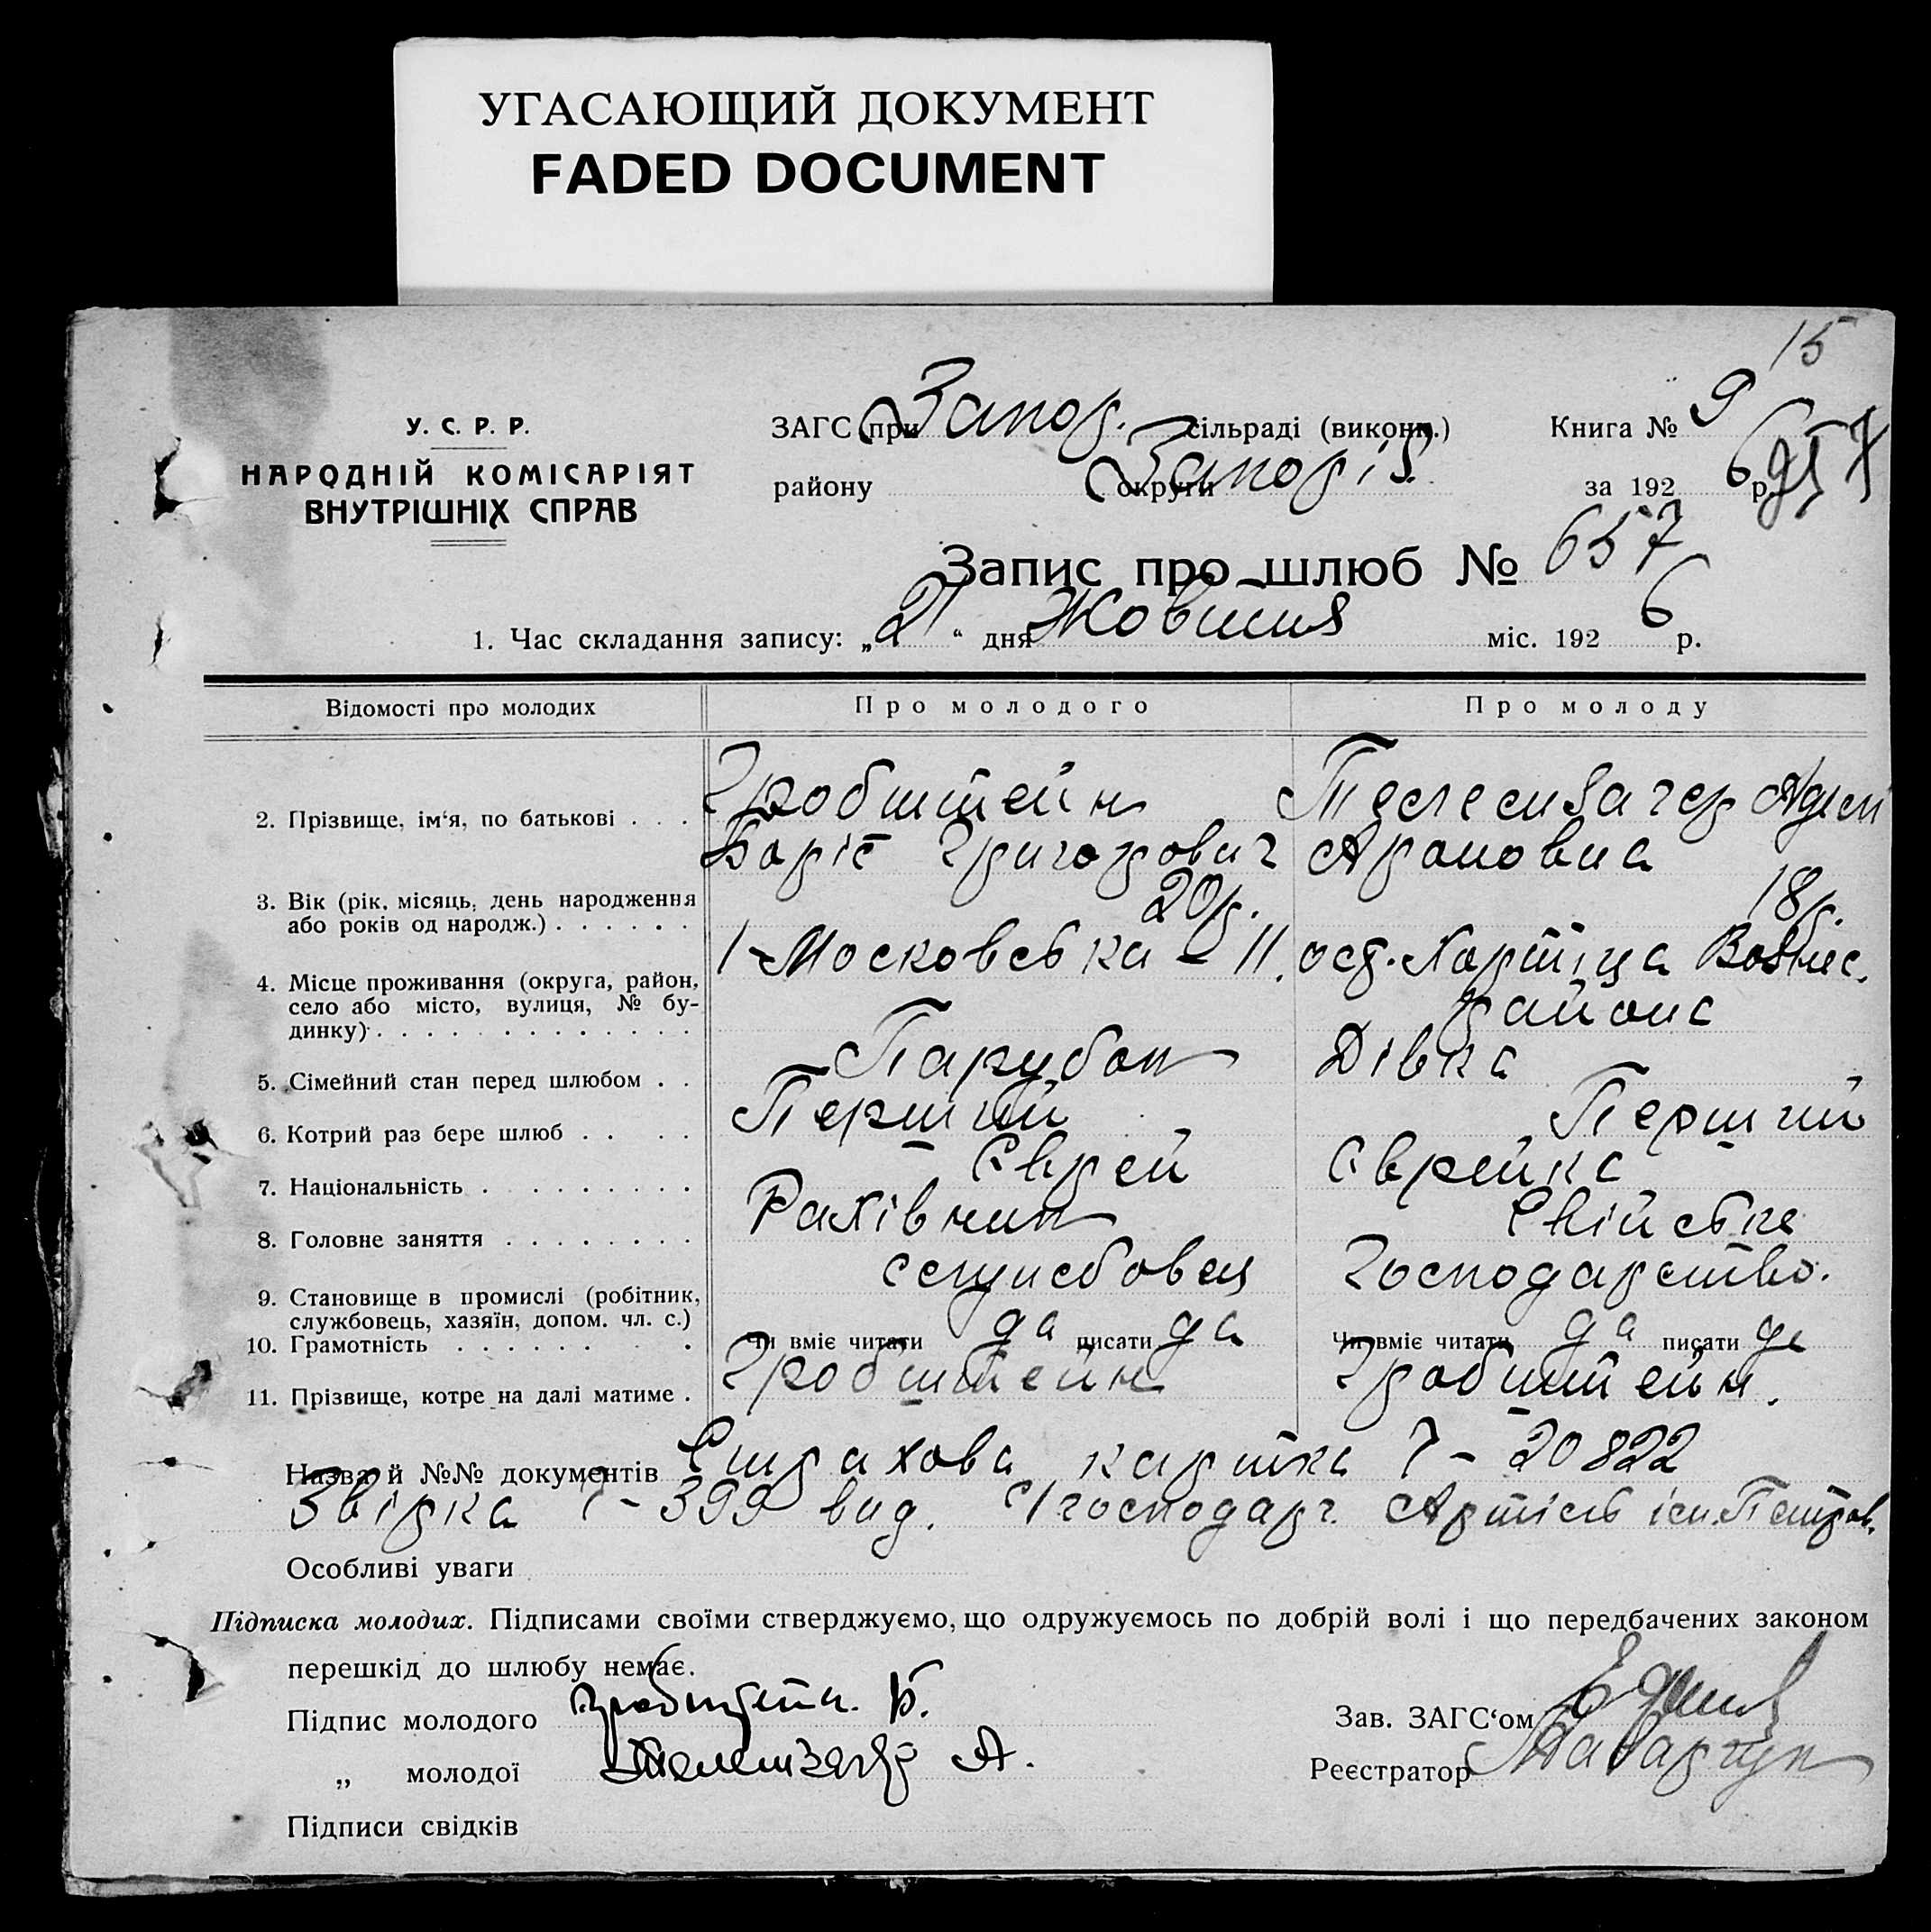 УГАСАЮЩИЙ ДОКУМЕНТ
FADED DOCUMENT
15
У. С. Р. Р.
НАРОДНІЙ КОМІСАРІЯТ
ВНУТРІШНІХ СПРАВ
ЗАГС при Запор. сільраді (викони.) Книга № 9
району округи Запоріз. за 192 6 р. 957
Запис про шлюб № 657
1. Час складання запису: „ 21 “ дня Жовтня міс. 192 6 р.
Відомості про молодих Про молодого Про молоду
2. Прізвище, ім‘я, по батькові . . . Гробштейн
Боріс Григорович Ароновна
3. Вік (рік, місяць, день народження
або років од народж.) . . . . . . 20р. 18р.
4. Місце проживання (округа, район,
село або місто, вулиця, № бу-
динку) . . . . . . . . . . . . . І-Московська - 11. Хортіца Вознес.
района
5. Сімейний стан перед шлюбом . . Парубок Дівка
6. Котрий раз бере шлюб . . . . Перший Перший
7. Національність . . . . . . . . . Єврей Єврейка
8. Головне заняття . . . . . . . . Рахівник Свійське
9. Становище в промислі (робітник,
службовець, хазяїн, допом. чл. с.) службовец господарство.
10. Грамотність . . . . . . . . Чи вміє читати да писати да Чи вміє читати да писати да
11. Прізвище, котре на далі матиме . Гробштейн Гробштейн.
Назва й №№ документів Страхова картка 7 - 20822
Звірка 399 вид. господарч. Артіль ім. Петров.
Особливі уваги
Підписка молодих. Підписами своїми стверджуємо, що одружуємось по добрій волі і що передбачених законом
перешкід до шлюбу немає.
Підпис молодого Гробштейн. Б. Зав. ЗАГС‘ом
„ молодої А. Реєстратор
Підписи свідків